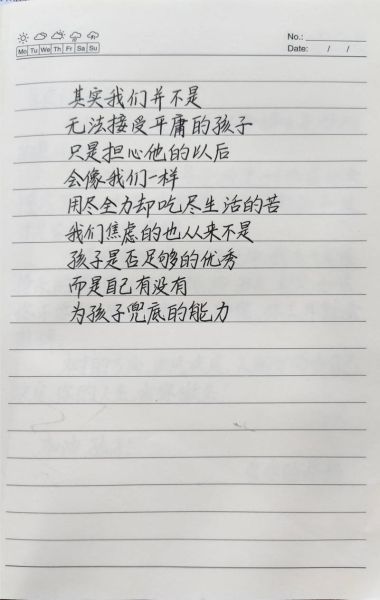 No.:
Mo Tu We Th Fr Sa Su
Date: / /
其实我们并不是
无法接受平庸的孩子
只是担心他的以后
会像我们一样
用尽全力却吃尽生活的苦
我们焦虑的也从来不是
孩子是否足够的优秀
而是自己有没有
为孩子兜底的能力